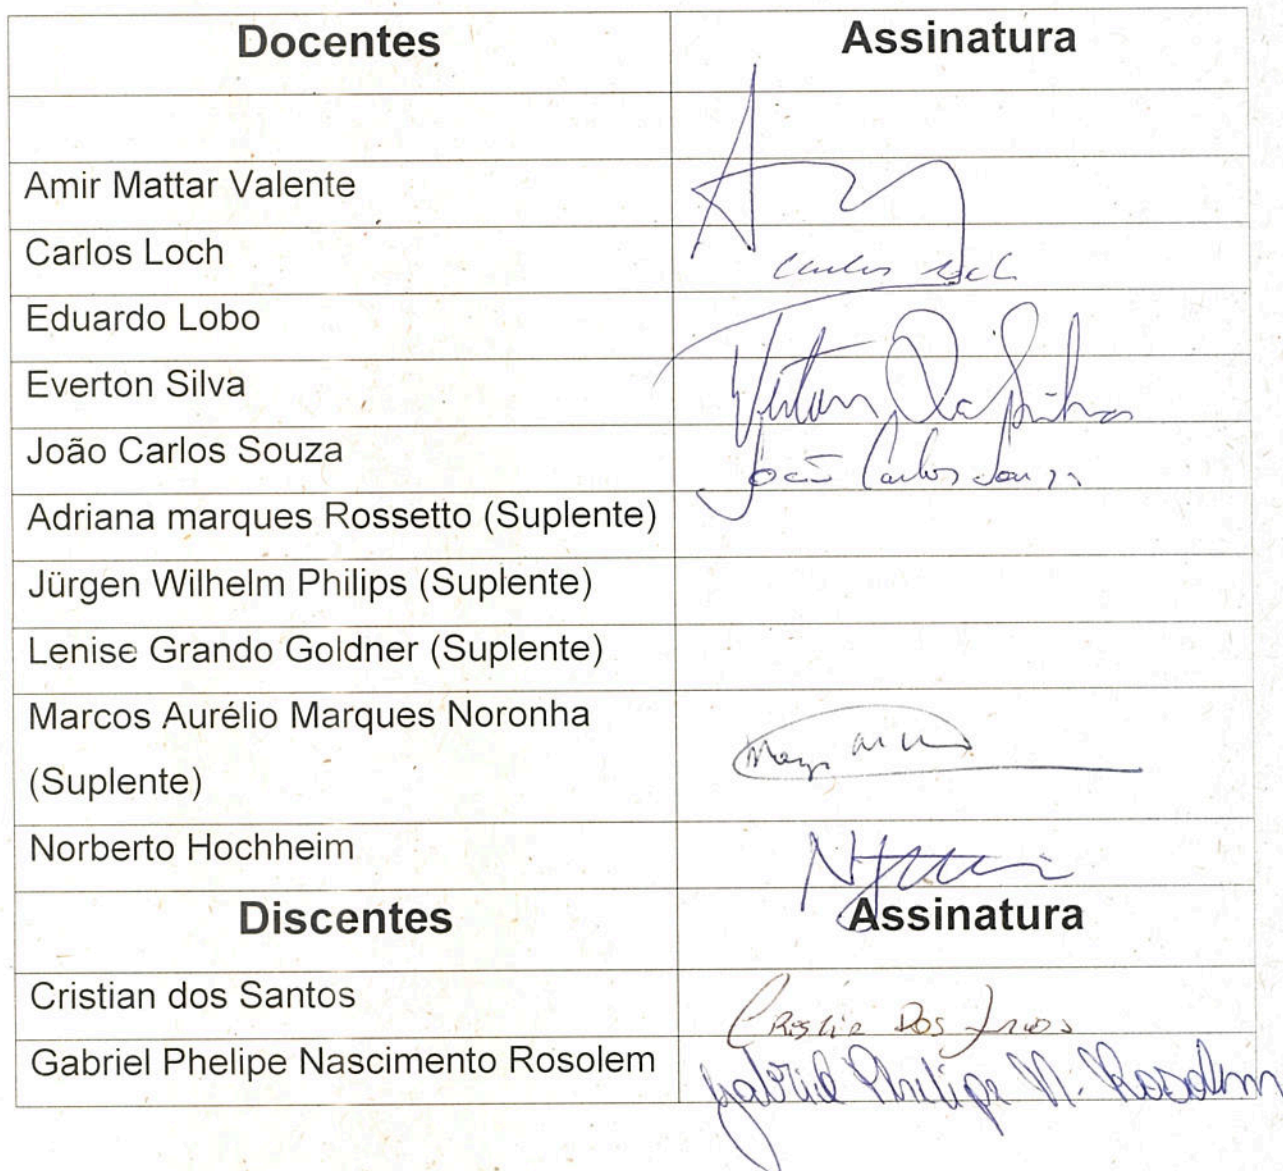 Docentes Assinatura
Amir Mattar Valente
Carlos Loch Carlos Loch
Eduardo Lobo
Everton Silva Everton da Silva
João Carlos Souza João Carlos Souza
Adriana marques Rossetto (Suplente)
Jürgen Wilhelm Philips (Suplente)
Lenise Grando Goldner (Suplente)
Marcos Aurélio Marques Noronha
(Suplente)
Norberto Hochheim
Discentes Assinatura
Cristian dos Santos Cristian Dos Santos
Gabriel Phelipe Nascimento Rosolem Gabriel Phelipe N. Rosolem